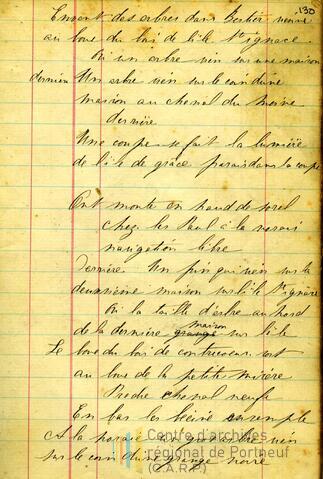 130
Envont des arbres dans Bertier venire
au boue du boi de l'ile St ignace.
Ou un arbre vien sur une maison
dernière Un arbre vien sur le coin d'une
maison au chenal du moine
dernière
Une coupe se fait la lumière
de l'ile de grâce parais dans la coupe
Ont monte en haud de sorel
chez les Paul à la
navigation libre
Dernière. Un pin qui vien sur la
deuxsième maison sur l'ile St ignace
Ou la taille d'arbre au nord
de la dernière grange maison sur l'ile
Le boue du boi de contrecoeur est
au boue de la petite misère
Prodre chenal neufe
En bas les ensemple
A la un arbre vien
sur le coin d'une grange noire
Centre d'archives
régional de Portneuf
(C.A.R.P.)